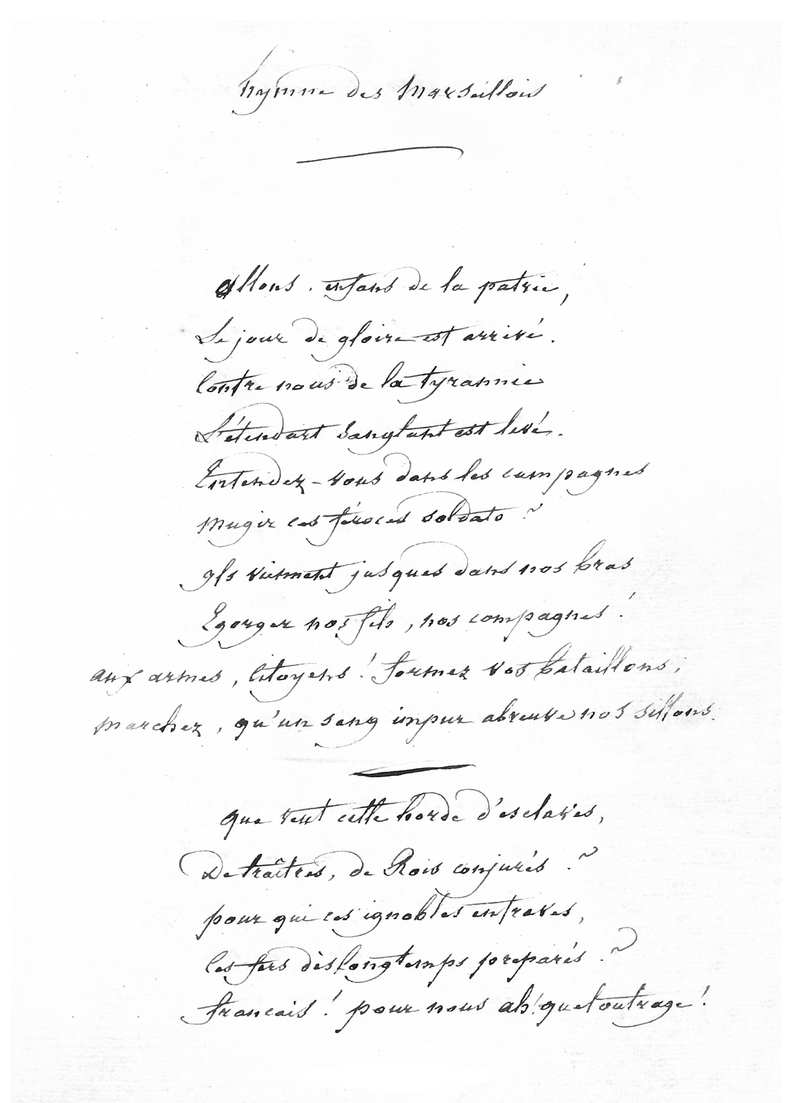 hymne des Marseillois
allons . enfans de la patrie,
Le jour de gloire est arrivé.
Contre nous de la tyrannie
L'étendart sanglant est levé.
Entendez-vous dans les campagnes
Mugir ces féroces soldats ?
Ils viennent jusques dans nos bras
Egorger nos fils, nos compagnes !
aux armes, Citoyens ! formez vos bataillons ;
marchez, qu'un sang impur abreuve nos sillons.
que veut cette horde d'esclaves,
De traîtres, de Rois conjurés ?
pour qui ces ignobles entraves,
Ces fers dès longtemps preparés ?
francais ! pour nous ah! quel outrage !